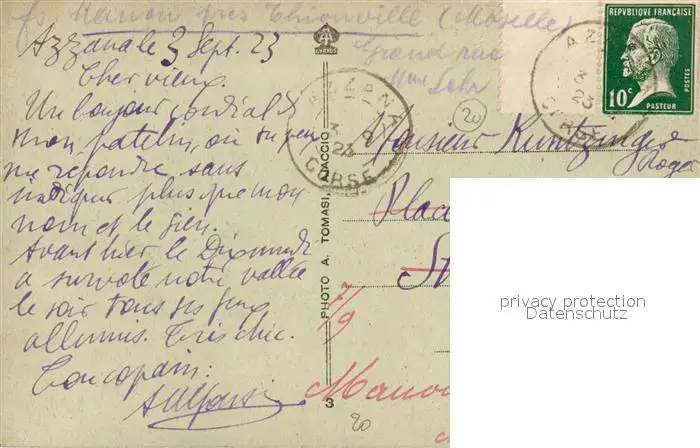 Manom près Thionville (Moselle)
Grand rue
Mme Lehr
Azzana le 3 Sept. 23
Cher vieux.
Un bonjour cordial de
mon patelin, où tu peux
me répondre sans
indiquer plus que mon
nom et le lien.
Avant hier le Dixmude
a survolé notre vallée
le soir tous ses feux
allumés. Très chic.
Ton copain:
PHOTO A. TOMASI, AJACCIO
3
AZZANA
3 9
23
CORSE
20
REPUBLIQUE FRANÇAISE
10c
POSTES
PASTEUR
AZ
3
23
CORSE
Monsieur Kuntzinger
Roger
Place
St
7/9
Mano
20
privacy protection
Datenschutz